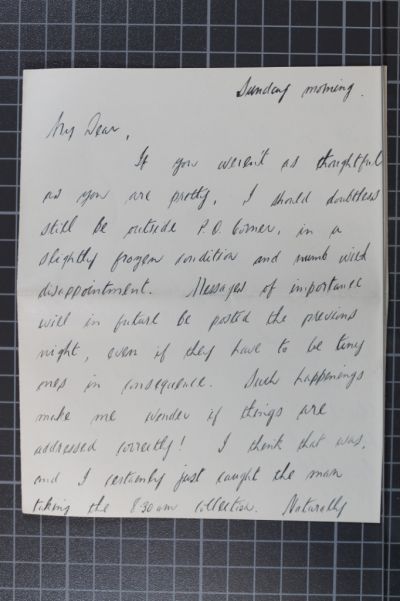 Sunday morning.
My Dear,
If you weren't as thoughtful
as you are pretty, I should doubtless
still be outside P.O. Corner, in a
slightly frozen condition and numb with
disappointment. Messages of importance
will in future be posted the previous
night, even if they have to be tiny
ones in consequence. Such happenings
make me wonder if things are
addressed correctly! I think that was,
and I certainly just caught the man
taking the 8.30am collection. Naturally